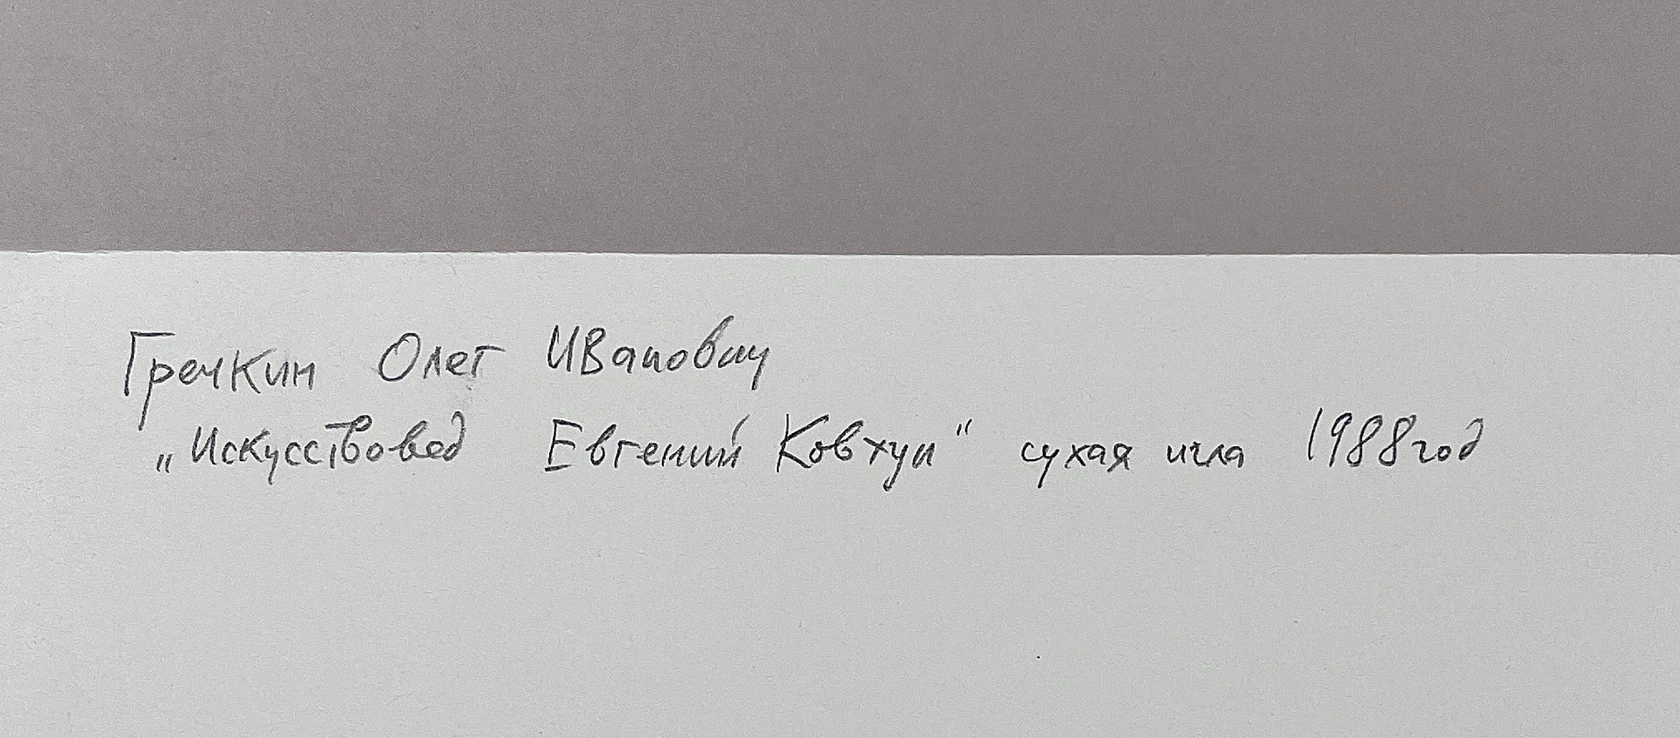 Гречкин Олег Иванович
„Искусствовед Евгений Ковхун" сухая игла 1988 год